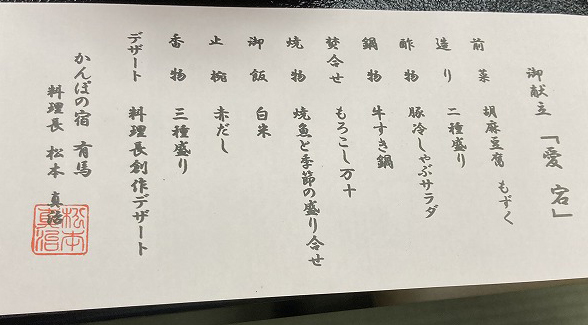 御献立 「愛宕」
前菜 胡麻豆腐 もずく
造り 二種盛り
酢物 豚冷しゃぶサラダ
鍋物 牛すき鍋
焚合せ もろこし万十
焼物 焼魚と季節の盛り合せ
御飯 白米
止椀 赤だし
香物 三種盛り
デザート 料理長創作デザート
かんぽの宿 有馬
料理長 松本 真治
松本
真治